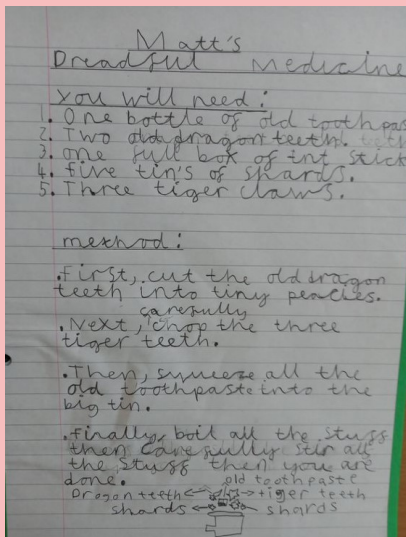 Matt's
Dreadful Medicine
You will need:
1. One bottle of old toothpas
2. Two old dragon teeth.
3. one full box of int stick
4. five tin's of shards.
5. Three tiger claws.
method:
.first, cut the old dragon
teeth into tiny peacies.
carefully
.Next, chop the three
tiger teeth.
.Then, squeeze all the
old toothpaste into the
big tin.
.finally, boil all the stuss
then carefully stir all
the stuss then you are
done.
old toothpaste
Dragon teeth tiger teeth
shards shards